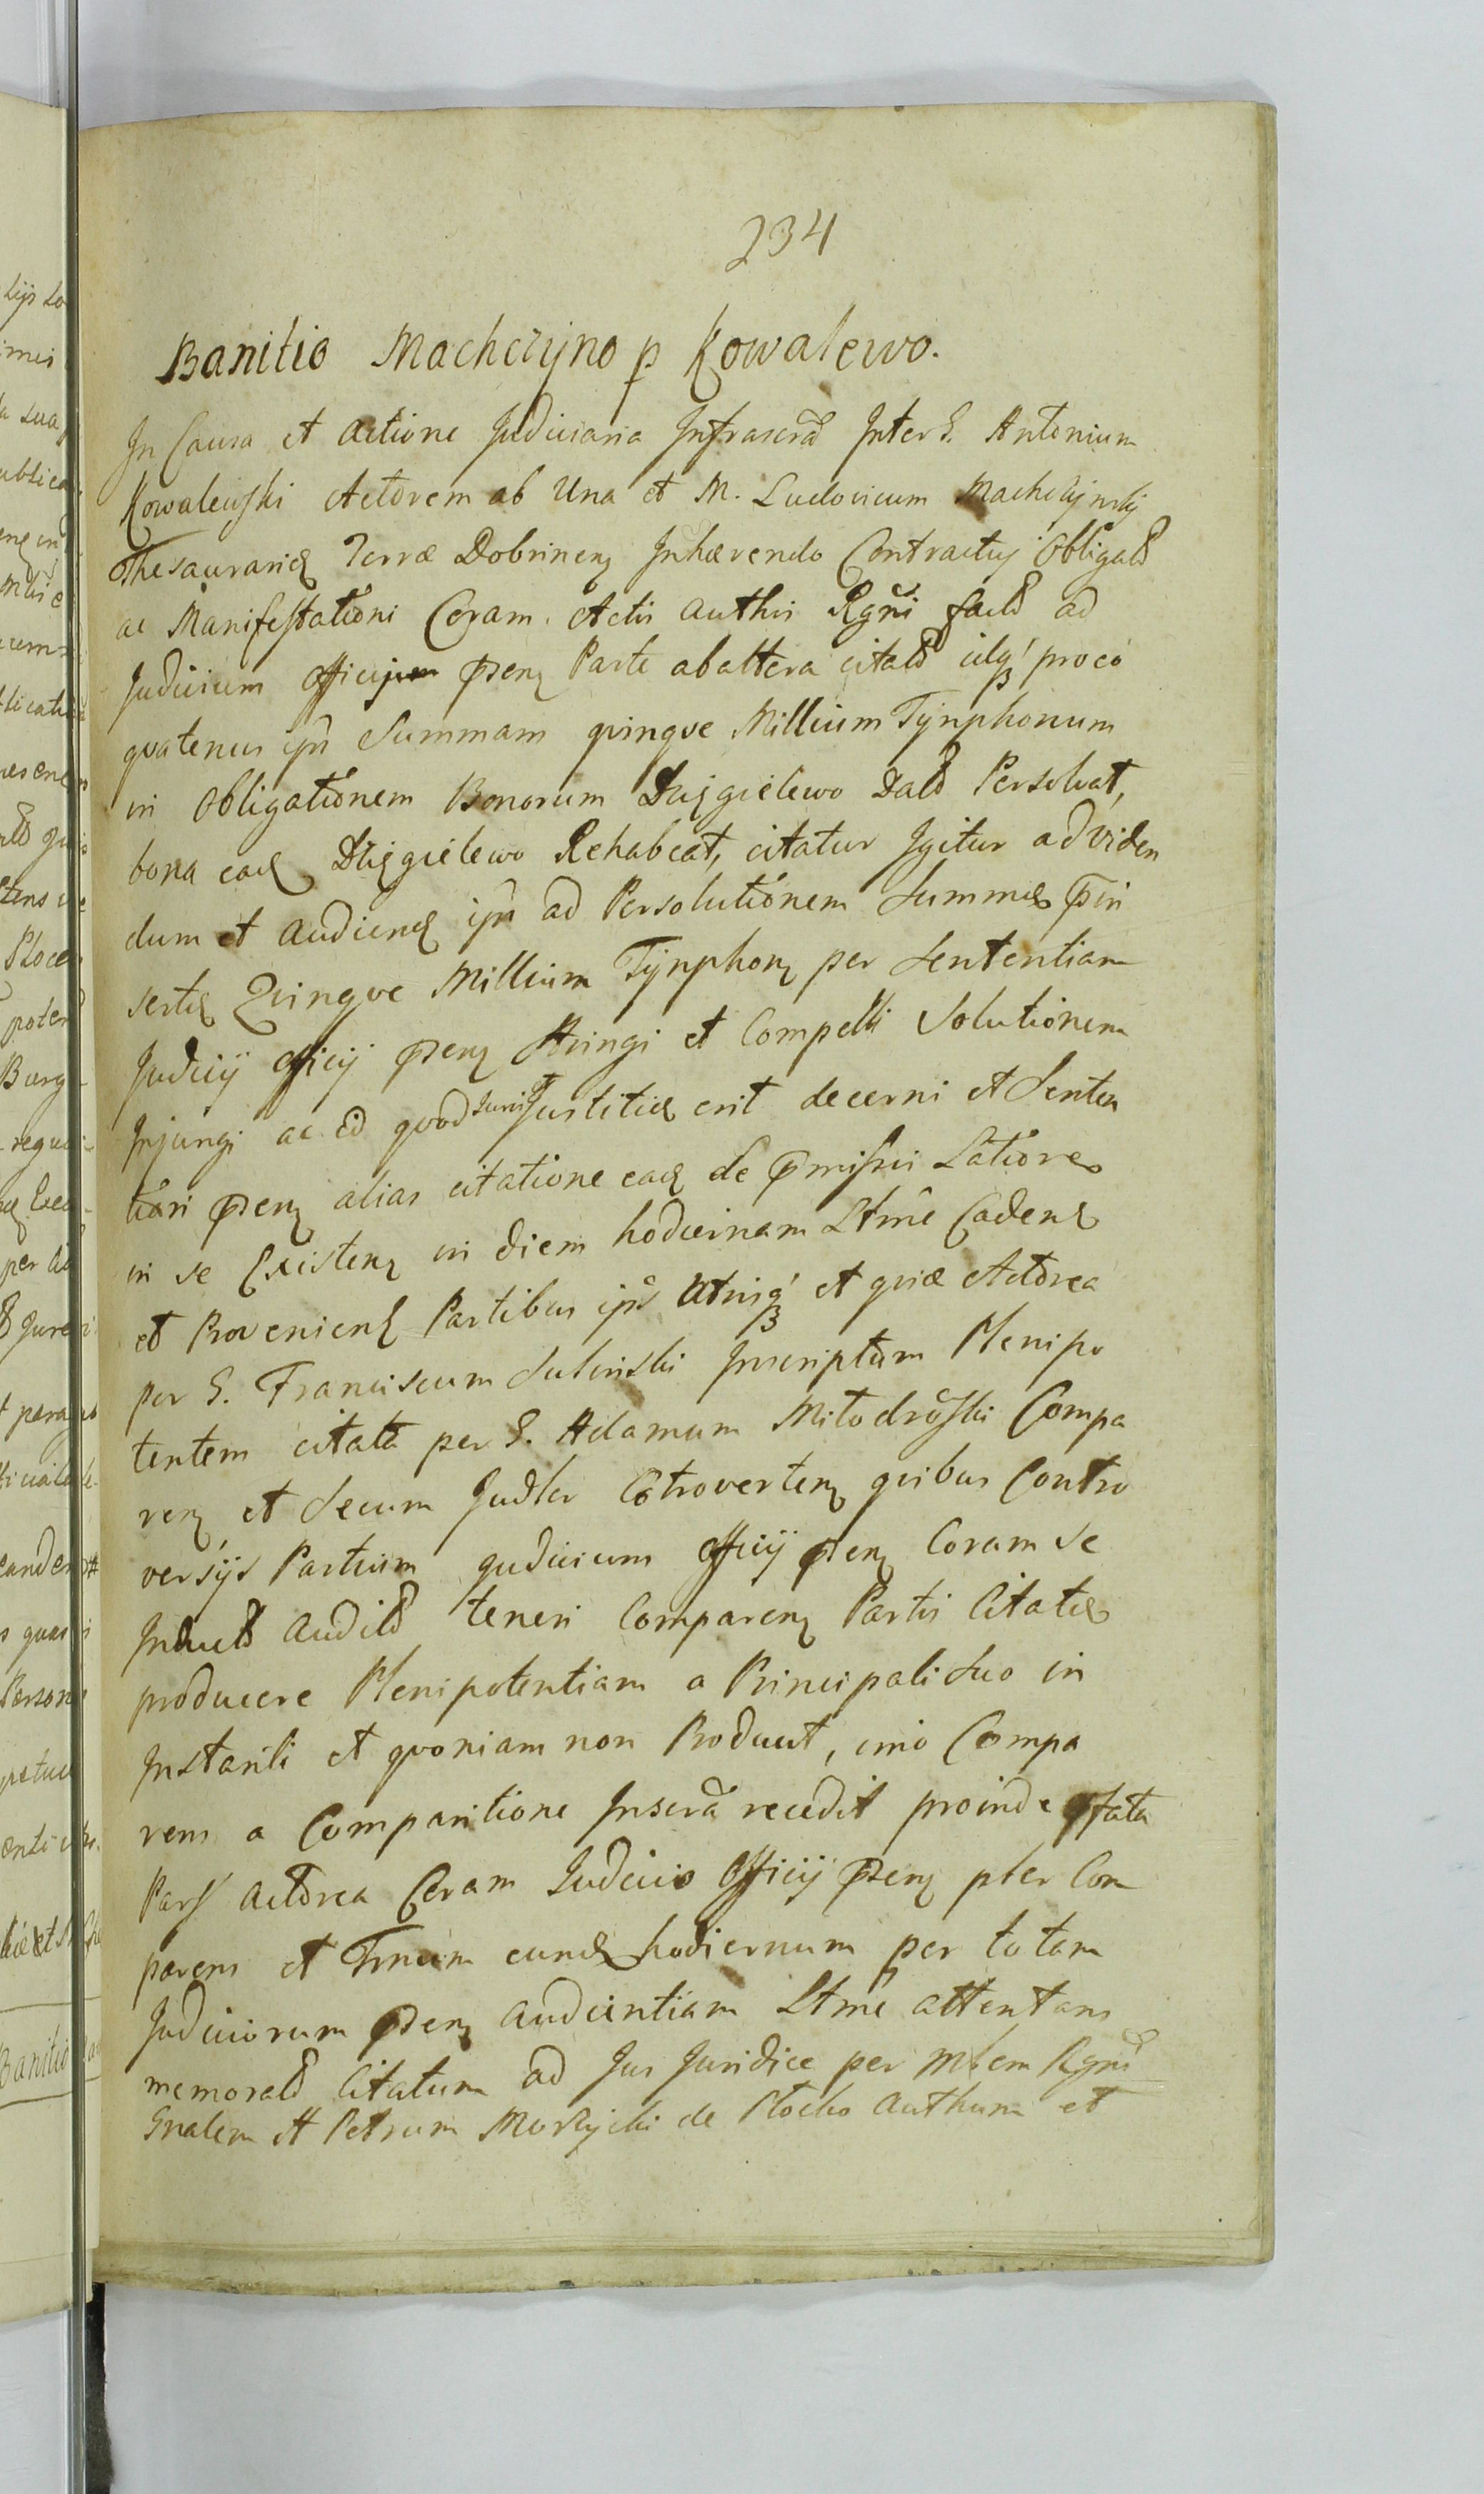 234
Banitio Machczyno p Kowalewo.
In Causa et Actione Judiciaria Infrascrã Inter G. Antonium
Kowalewski Actorem ab Una et M. Ludovicum Machczynski
Thesaurariũ Terræ Dobrinenʒ Inhærendo Contractuj Obligatõ
ac Manifestationi Coram Actis Authiis Rgñi factõ ad
Judicium Officij pñsenʒ Parte ab altera citatõ idqʒ pro eo
qvatenus ipñ Summam qvinqve Millium Tynphonum
in Obligationem Bonorum Dzięgielewo Datõ Persolvat,
bona eadʒ Dzięgielewo Rehabeat, citatur Igitur ad viden
dum et Audiendʒ ipñ ad Persolutionem Summæ pñin
sertæ Qvinqve Millium Tynphonʒ per Sententiam
Judicij Officij pñsenʒ Stringi et Compelli Solutionem
Injungi ac id qvod Juris et Justitiæ erit decerni et Senten
tiari pñsenʒ alias citatione eadʒ de pñmissis Latiore
in se Existenʒ in diem hodiernam Ltmẽ Cadenʒ
et Provenienʒ Partibus ipñs Utrisqʒ et qvidẽ Actorea
per G. Franciscum Sulinski Inscriptum Plenipo
tentem citatã per G. Adamum Miłodroski Compa
renʒ et Secum Judler Cõtrovertenʒ qvibus Contro
versijs Partium Judicium Officij pñsenʒ Coram Se
Inductõ Auditõ teneri Comparenʒ Partis Citatæ
producere Plenipotentiam a Principali Suo in
Instanti et qvoniam non Produxit, imo Compa
rens a Comparitione Inscrã recedit proinde pñfata
Pars Actorea Coram Judicio Officij pñsenʒ pler Com
parens et Trnum eundʒ hodiernum per totam
Judiciorum pñsenʒ Audientiam Ltmẽ attentans
memoratõ Citatum ad Jus Juridice per Mlem Rgni
Gnalem et Petrum Mokrzycki de Płocko Authum et